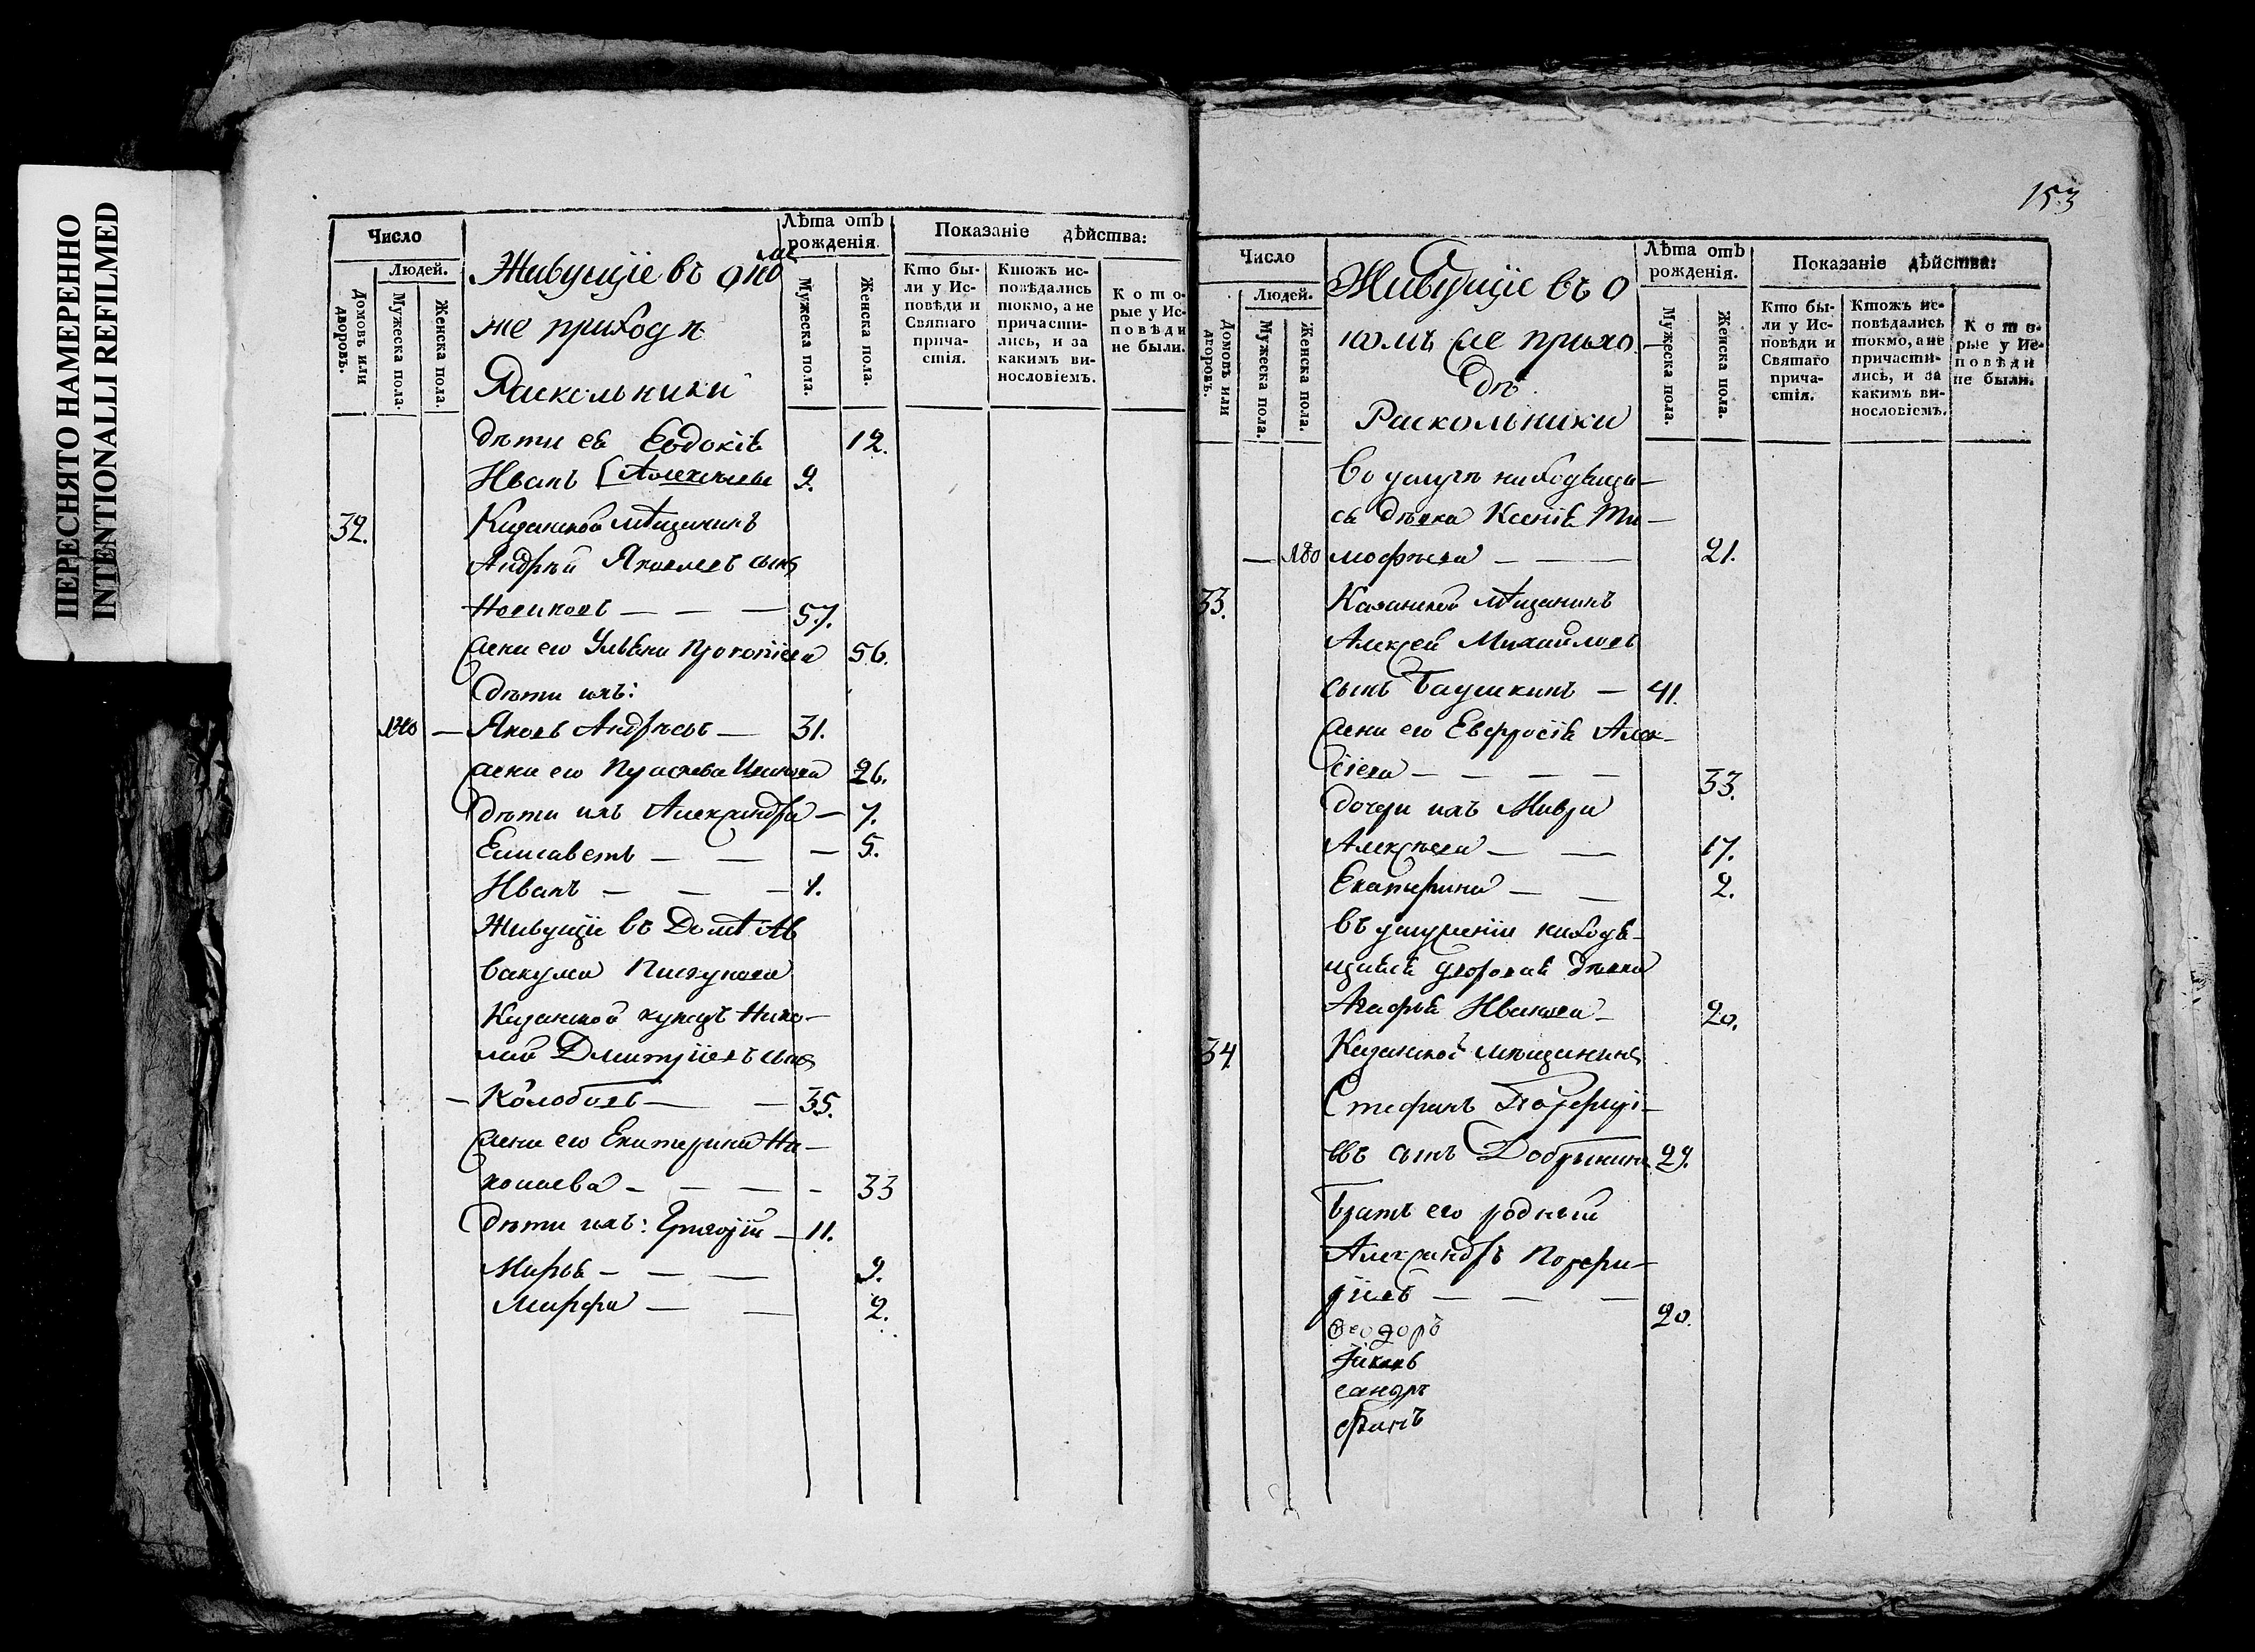 ПЕРЕСНЯТО НАМЕРЕННО
INTENTIONALLI REFILMED
Число
Людей.
Домовъ или дворовъ.
Мужеска пола.
Женска пола.
Живущіе въ оно
мъ
же приходѣ
Раскольники
Лѣта отъ
рожденія.
Мужеска пола.
Женска пола.
Показаніе дѣйства:
Кто бы-
ли у Ис-
повѣди и
Святаго
прича-
стія.
Ктожъ ис-
повѣдались
токмо, а не
причасти-
лись, и за
какимъ ви-
нословіемъ.
Кото-
рые у Ис-
повѣди
не были.
дѣти ея Евдокія 12.
Иванъ Алексѣевы 9.
32. Казанской мѣщанинъ
Андрей Яковлевъ сынъ
Новиковъ — — — 57.
жена его Ульяна Прокопіева 56.
дѣти ихъ:
— Яковъ Андреевъ — 31.
жена его Прасковья Иванова 26.
дѣти ихъ Александра — 7.
Елисаветъ — — — 5.
Иванъ — — — 1.
Живущіе въ Домѣ Ав
вакума
Казанской купецъ Нико-
лай Дмитріевъ сынъ
— Колобовъ — — 35.
жена его Екатерина Ни-
колаева — — — — 33
дѣти ихъ: Григорій — 11.
Марья — — — 9.
Марфа — — 2.
153
Число
Людей.
Домовъ или дворовъ.
Мужеска пола.
Женска пола.
Живущіе въ о
номъ же прихо-
дѣ
Раскольники
Лѣта отъ
рожденія.
Мужеска пола.
Женска пола.
Показаніе дѣйства:
Кто бы-
ли у Ис-
повѣди и
Святаго
прича-
стія.
Ктожъ ис-
повѣдались
токмо, а не
причасти-
лись, и за
какимъ ви-
нословіемъ.
Кото-
рые у Ис-
повѣди
не были.
Во услугѣ находяща-
ся дѣвка Ксенія Ти-
— мофѣева — — — 21.
33. Казанской мѣщанинъ
Алексей Михайловъ
сынъ Баушкинъ — 41.
жена его Евфросія Алек-
сіева — — — — 33.
дочери ихъ Мавра
Алексѣева — — 17.
Екатерина — — 2.
въ услуженіи находя-
щаяся дворовая дѣвка
Агафья Иванова — 20.
34. Казанской мѣщанинъ
Стефанъ Порфирі-
евъ сынъ Добрынинъ 29.
Братъ его родный
Александръ Порфи-
ріевъ — — — 20.
Ѳеодоръ